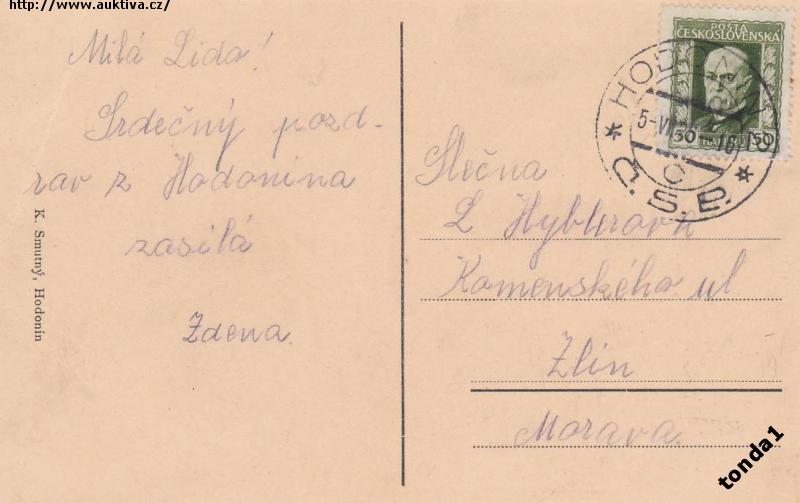 http://www.auktiva.cz/
Milá Lido!
Srdečný pozd-
rav z Hodonína
zasílá
Zdena.
K. Smutný, Hodonín
POŠTA
ČESKOSLOVENSKÁ
50 50
HODONÍN
Č.S.P.
Slečna
L
Komenského ul
Zlín
Morava.
tonda1